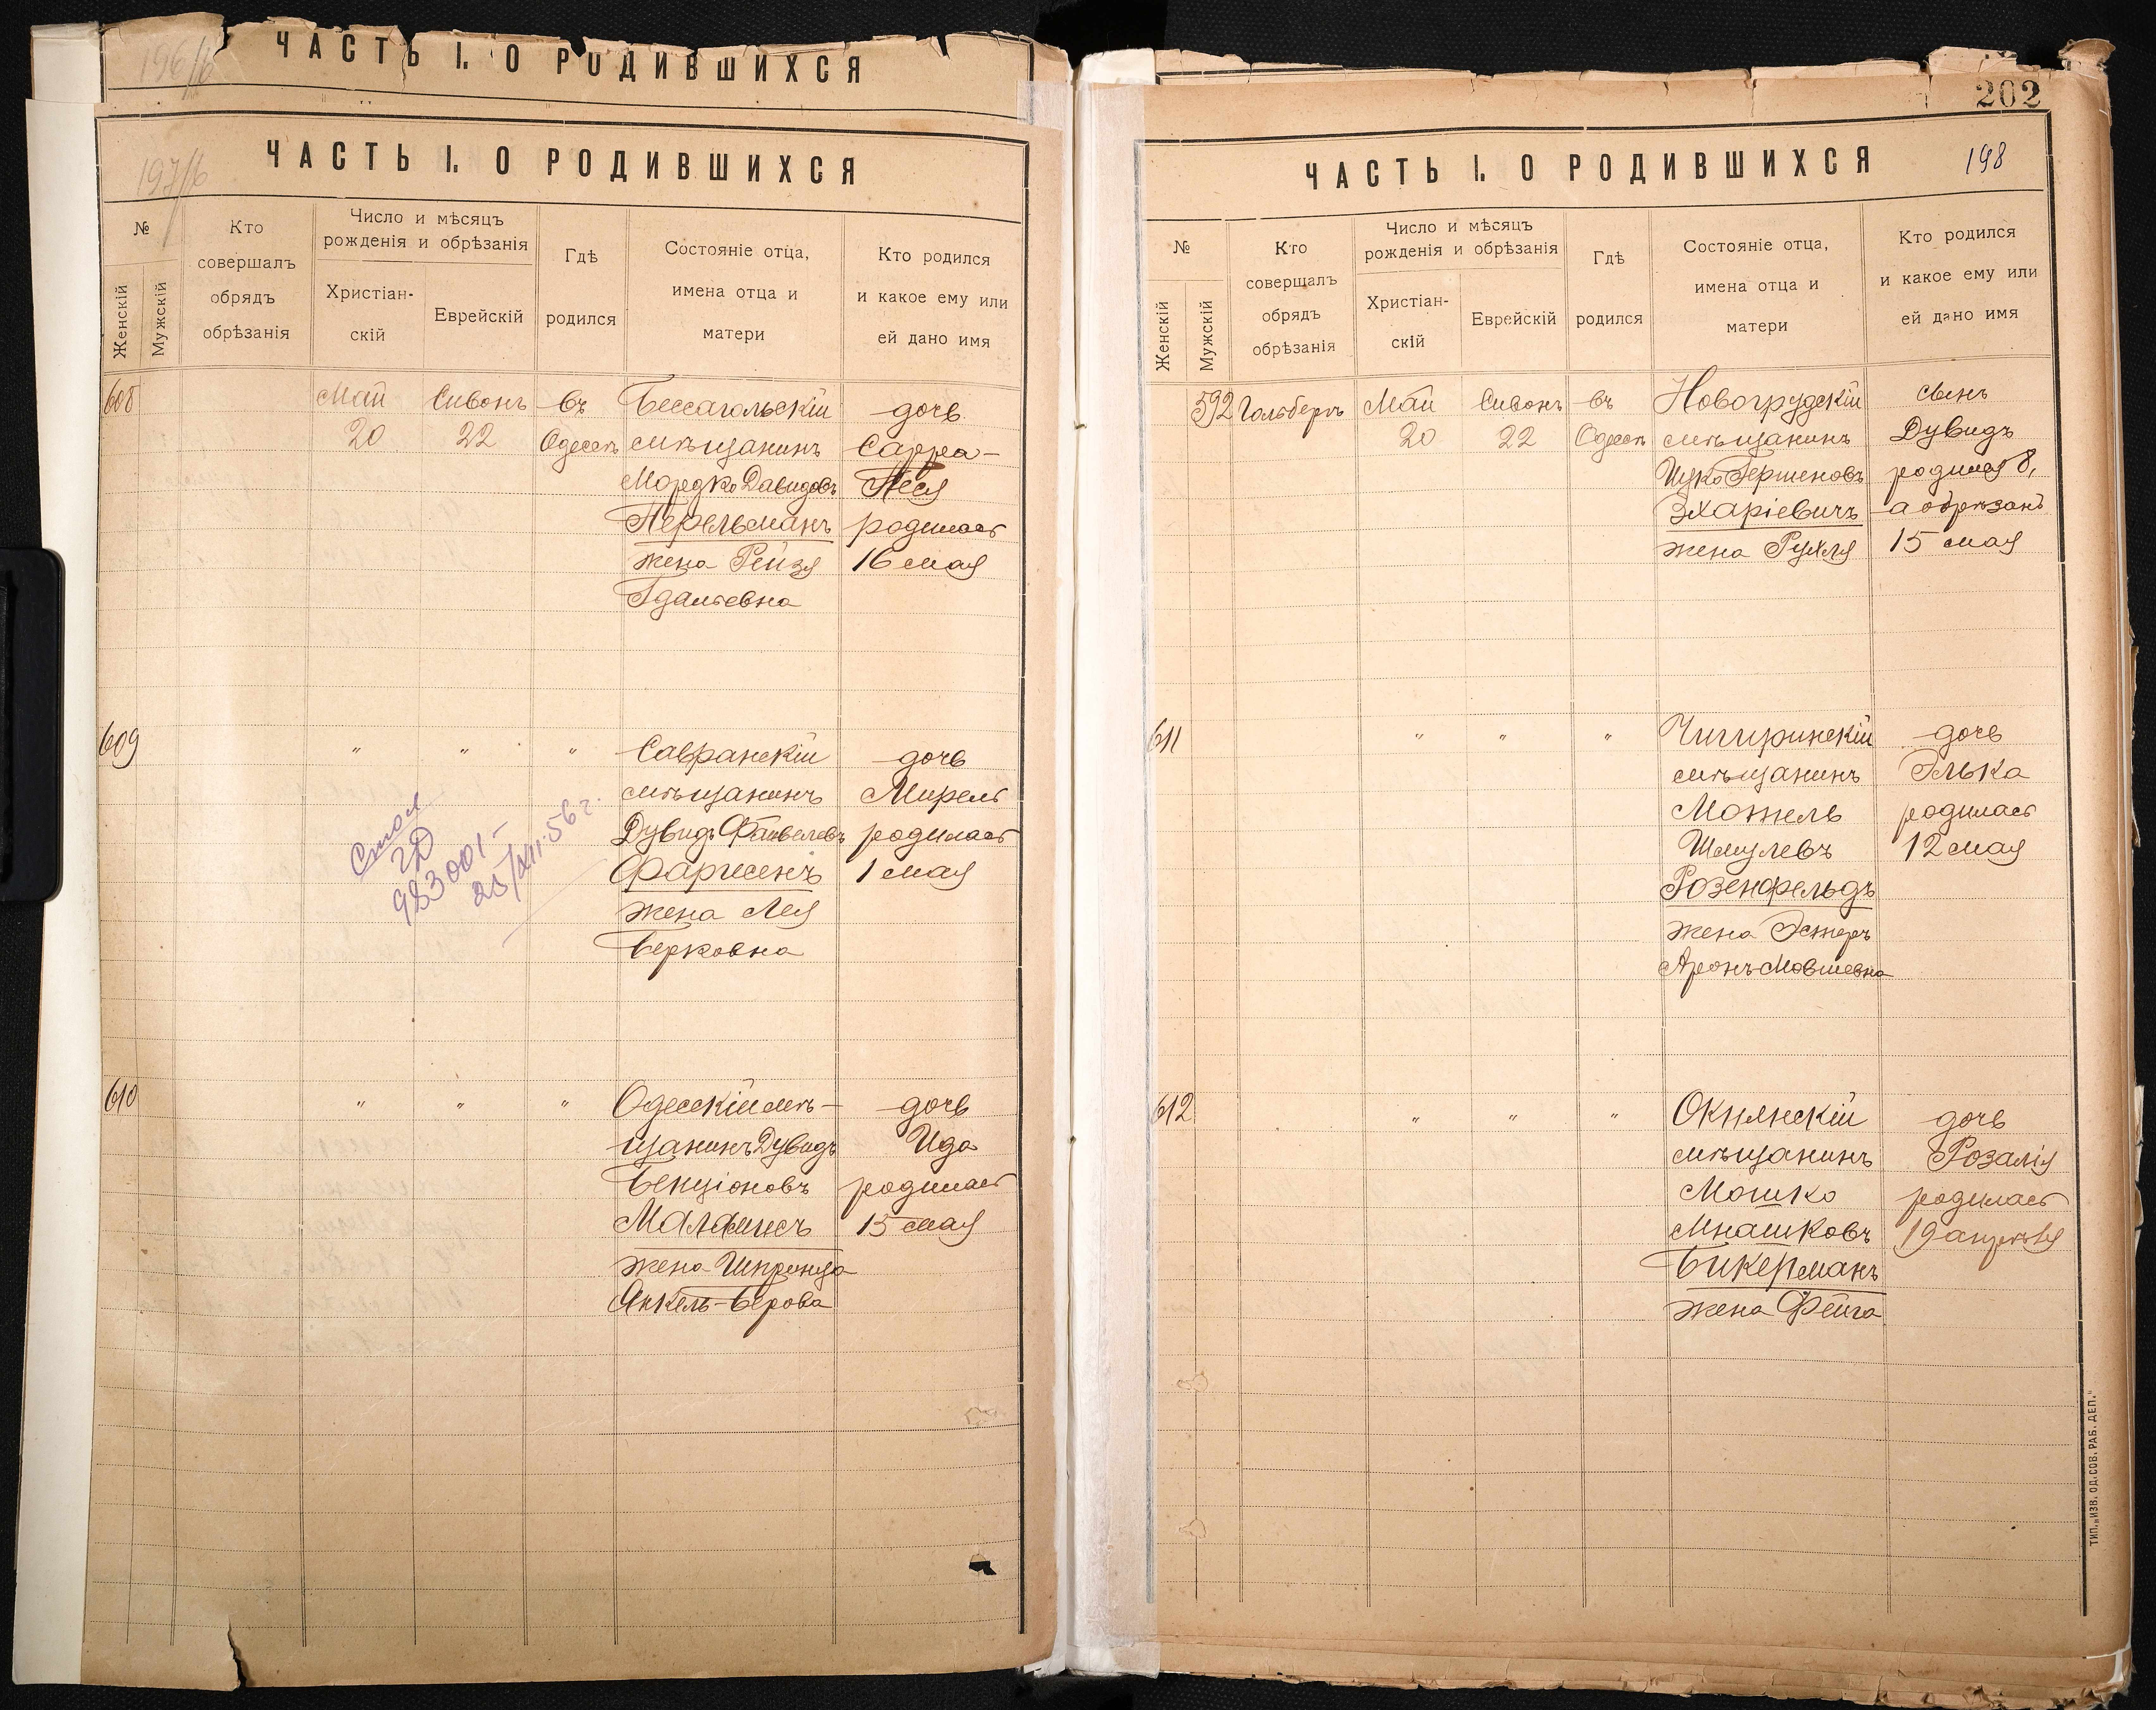 196/б
ЧАСТЬ I. О РОДИВШИХСЯ
197/б
ЧАСТЬ I. О РОДИВШИХСЯ
№
Женскій
Мужскій
Кто
совершалъ
обрядъ
обрѣзанія
Число и мѣсяцъ
рожденія и обрѣзанія
Христіан-
скій
Еврейскій
Гдѣ
родился
Состояніе отца,
имена отца и
матери
Кто родился
и какое ему или
ей дано имя
608
Май
20
Сивонъ
22
въ
Одессѣ
мѣщанинъ
Мордко Давидовъ
Перельманъ
жена Рейзя
Гдальевна
дочь
Сарра-
Песя
родилась
16 мая
609
"
"
"
Савранскій
мѣщанинъ
Дувидъ Файвелевъ
жена Лея
Берковна
дочь
Мирель
родилась
1 мая
983001-
25/XII.56г.
610
"
"
"
Одесскій мѣ-
щанинъ Дувидъ
Бенціоновъ
жена Шпринца
Янкель-Берова
дочь
Ида
родилась
15 мая
202
198
ЧАСТЬ I. О РОДИВШИХСЯ
№
Женскій
Мужскій
Кто
совершалъ
обрядъ
обрѣзанія
Число и мѣсяцъ
рожденія и обрѣзанія
Христіан-
скій
Еврейскій
Гдѣ
родился
Состояніе отца,
имена отца и
матери
Кто родился
и какое ему или
ей дано имя
592
Гольберъ
Май
20
Сивонъ
22
въ
Одессѣ
Новогрудскій
мѣщанинъ
Ицко Гершеновъ
Зхаріевичъ
жена Рухля
сынъ
Дувидъ
родился 8,
а обрѣзанъ
15 мая
611
"
"
"
Чигиринскій
мѣщанинъ
Мотель
Шмулевъ
Розенфельдъ
жена Эстеръ
Аронъ-Мовшевна
дочь
Элька
родилась
12 мая
612
"
"
"
Окнянскій
мѣщанинъ
Мошко
Мнашковъ
Бикерманъ
жена Фейга
дочь
Розалія
родилась
19 апрѣля
ТИП. „ИЗВ. ОД. СОВ. РАБ. ДЕП."